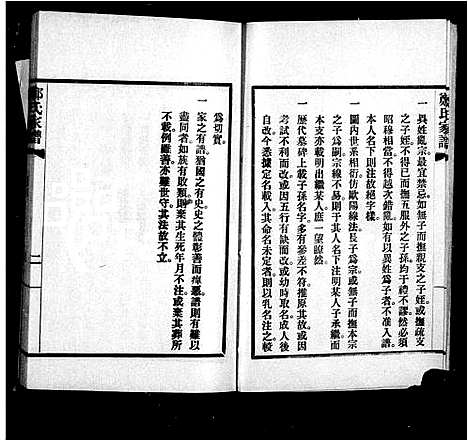 鄭氏家譜
一異姓亂宗最宜禁忌如無子而撫親支之子姪或撫疏支
之子姪不得已而撫五服外之子孫均于禮不謬然必須
昭穆相當不得越次錯亂如有以異姓爲子者不准入譜
本人名下則注故絕字樣
一圖內世系相衍仿歐陽線法長子爲宗或無子而撫本宗
之子爲嗣宗線不易則于其人名下注明某人子承繼而
本支亦載明出繼某人庶一望瞭然
一歷代墓碑上載子孫名字多有參差不符推原其故或因
考試不利而改或因五行有缺而改或幼時取名成人後
自改今悉據定名載入其有名未定者則以乳名注之較
爲切實
一家之有譜猶國之有史史之體彰善而癉惡譜則有難以
盡同者如族有敗類則棄其生死年月不注或棄其葬所
不載例雖善亦難世守其法故不立
鄭氏家譜
二